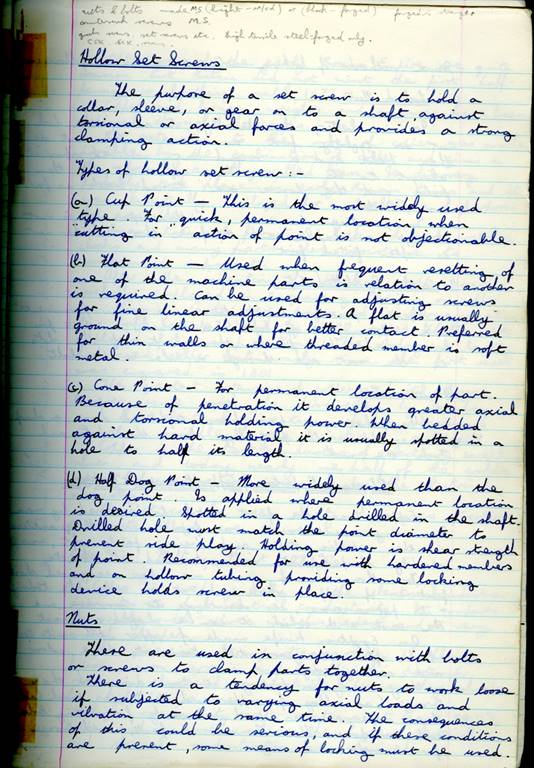 nuts & bolts made M.S. (bright - m/cd) or (black - forged)
M.S.
high tensile steel-forged only.
Hollow Set Screws
The purpose of a set screw is to hold a
collar, sleeve, or gear on to a shaft, against
torsional or axial forces and provides a strong
clamping action.
Types of hollow set screw :-
(a) Cup Point - This is the most widely used
type. For quick, permanent location when
"cutting in" action of point is not objectionable.
(b) Flat Point - Used when frequent resetting of
one of the machine parts is relation to another
is required. Can be used for adjusting screws
for fine linear adjustments. A flat is usually
ground on the shaft for better contact. Preferred
for thin walls or where threaded member is soft
metal.
(c) Cone Point - For permanent location of part.
Because of penetration it develops greater axial
and torsional holding power. When bedded
against hard material it is usually spotted in a
hole to half its length.
(d) Half Dog Point - More widely used than the
dog point. Is applied where permanent location
is desired. Spotted in a hole drilled in the shaft.
Drilled hole must match the point diameter to
prevent side play. Holding power is shear strength
of point. Recommended for use with hardened members
and on hollow tubing, providing some locking
device holds screw in place.
Nuts
These are used in conjunction with bolts
or screws to clamp parts together.
There is a tendency for nuts to work loose
if subjected to varying axial loads and
vibration at the same time. The consequences
of this could be serious, and if these conditions
are present, some means of locking must be used.